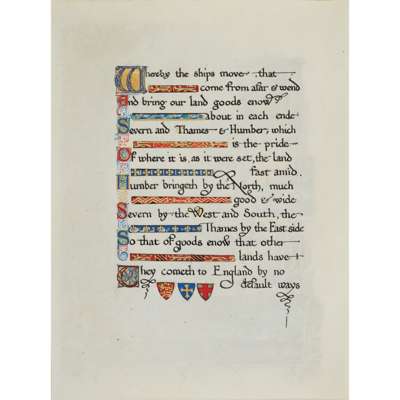 Whereby the ships move that
come from afar & wend
And bring our land goods enow
about in each ende
Severn and Thames & Humber, which
is the pride
Of where it is, as it were set, the land
fast amid.
Humber bringeth by the North, much
good & wide
Severn by the West and South, the
Thames by the East side
So that of goods enow that other
lands have
They cometh to England by no
default ways